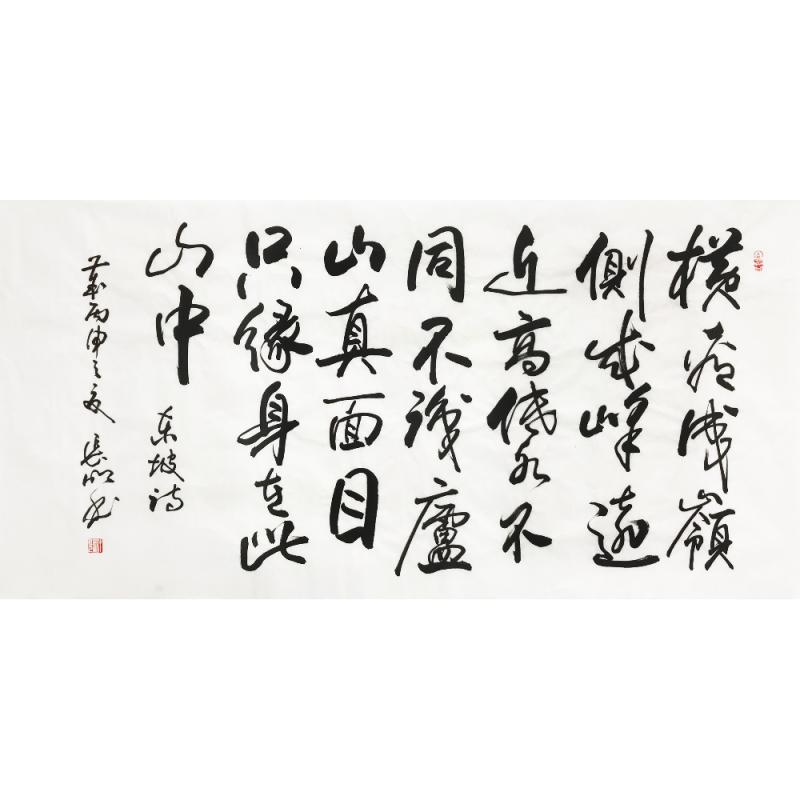 横看成嶺
側成峰遠
近高低各不
同不識廬
山真面目
只緣身在此
山中
东坡詩
歲丙申之夏 書